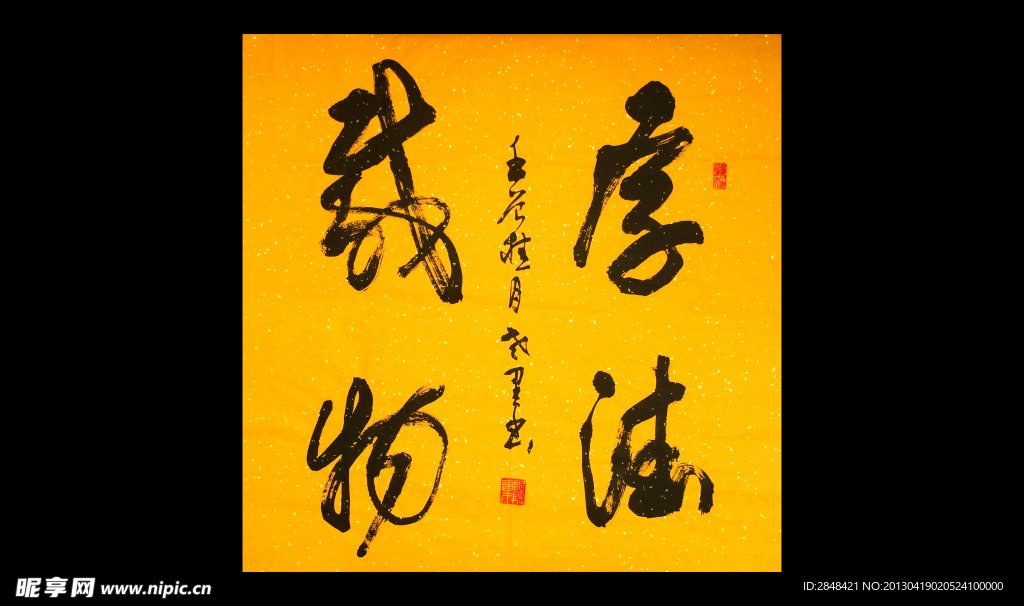 厚德
載物
壬辰桂月
书
昵享网 www.nipic.cn
ID:2848421 NO:20130419020524100000